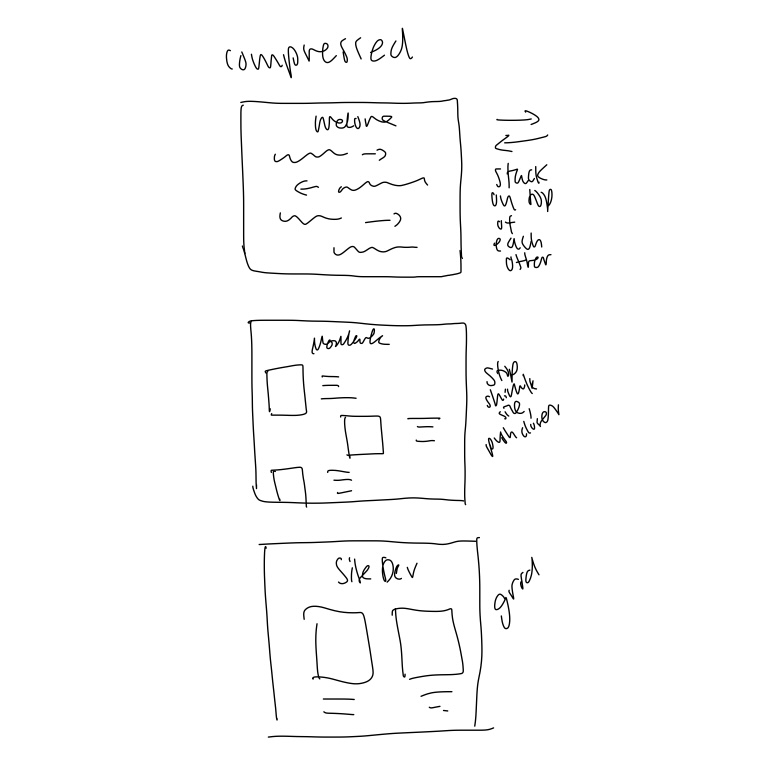 compressed
Welcome
stack
on top
of
each
other
stop
shrink
size,
push closer
Site Dev
grid